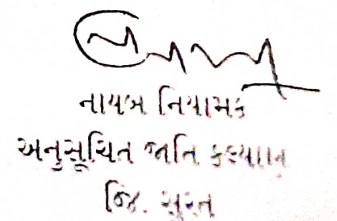 નાયબ નિયામક
અનુસૂચિત જાતિ કલ્યાણ
જિ. સુરત